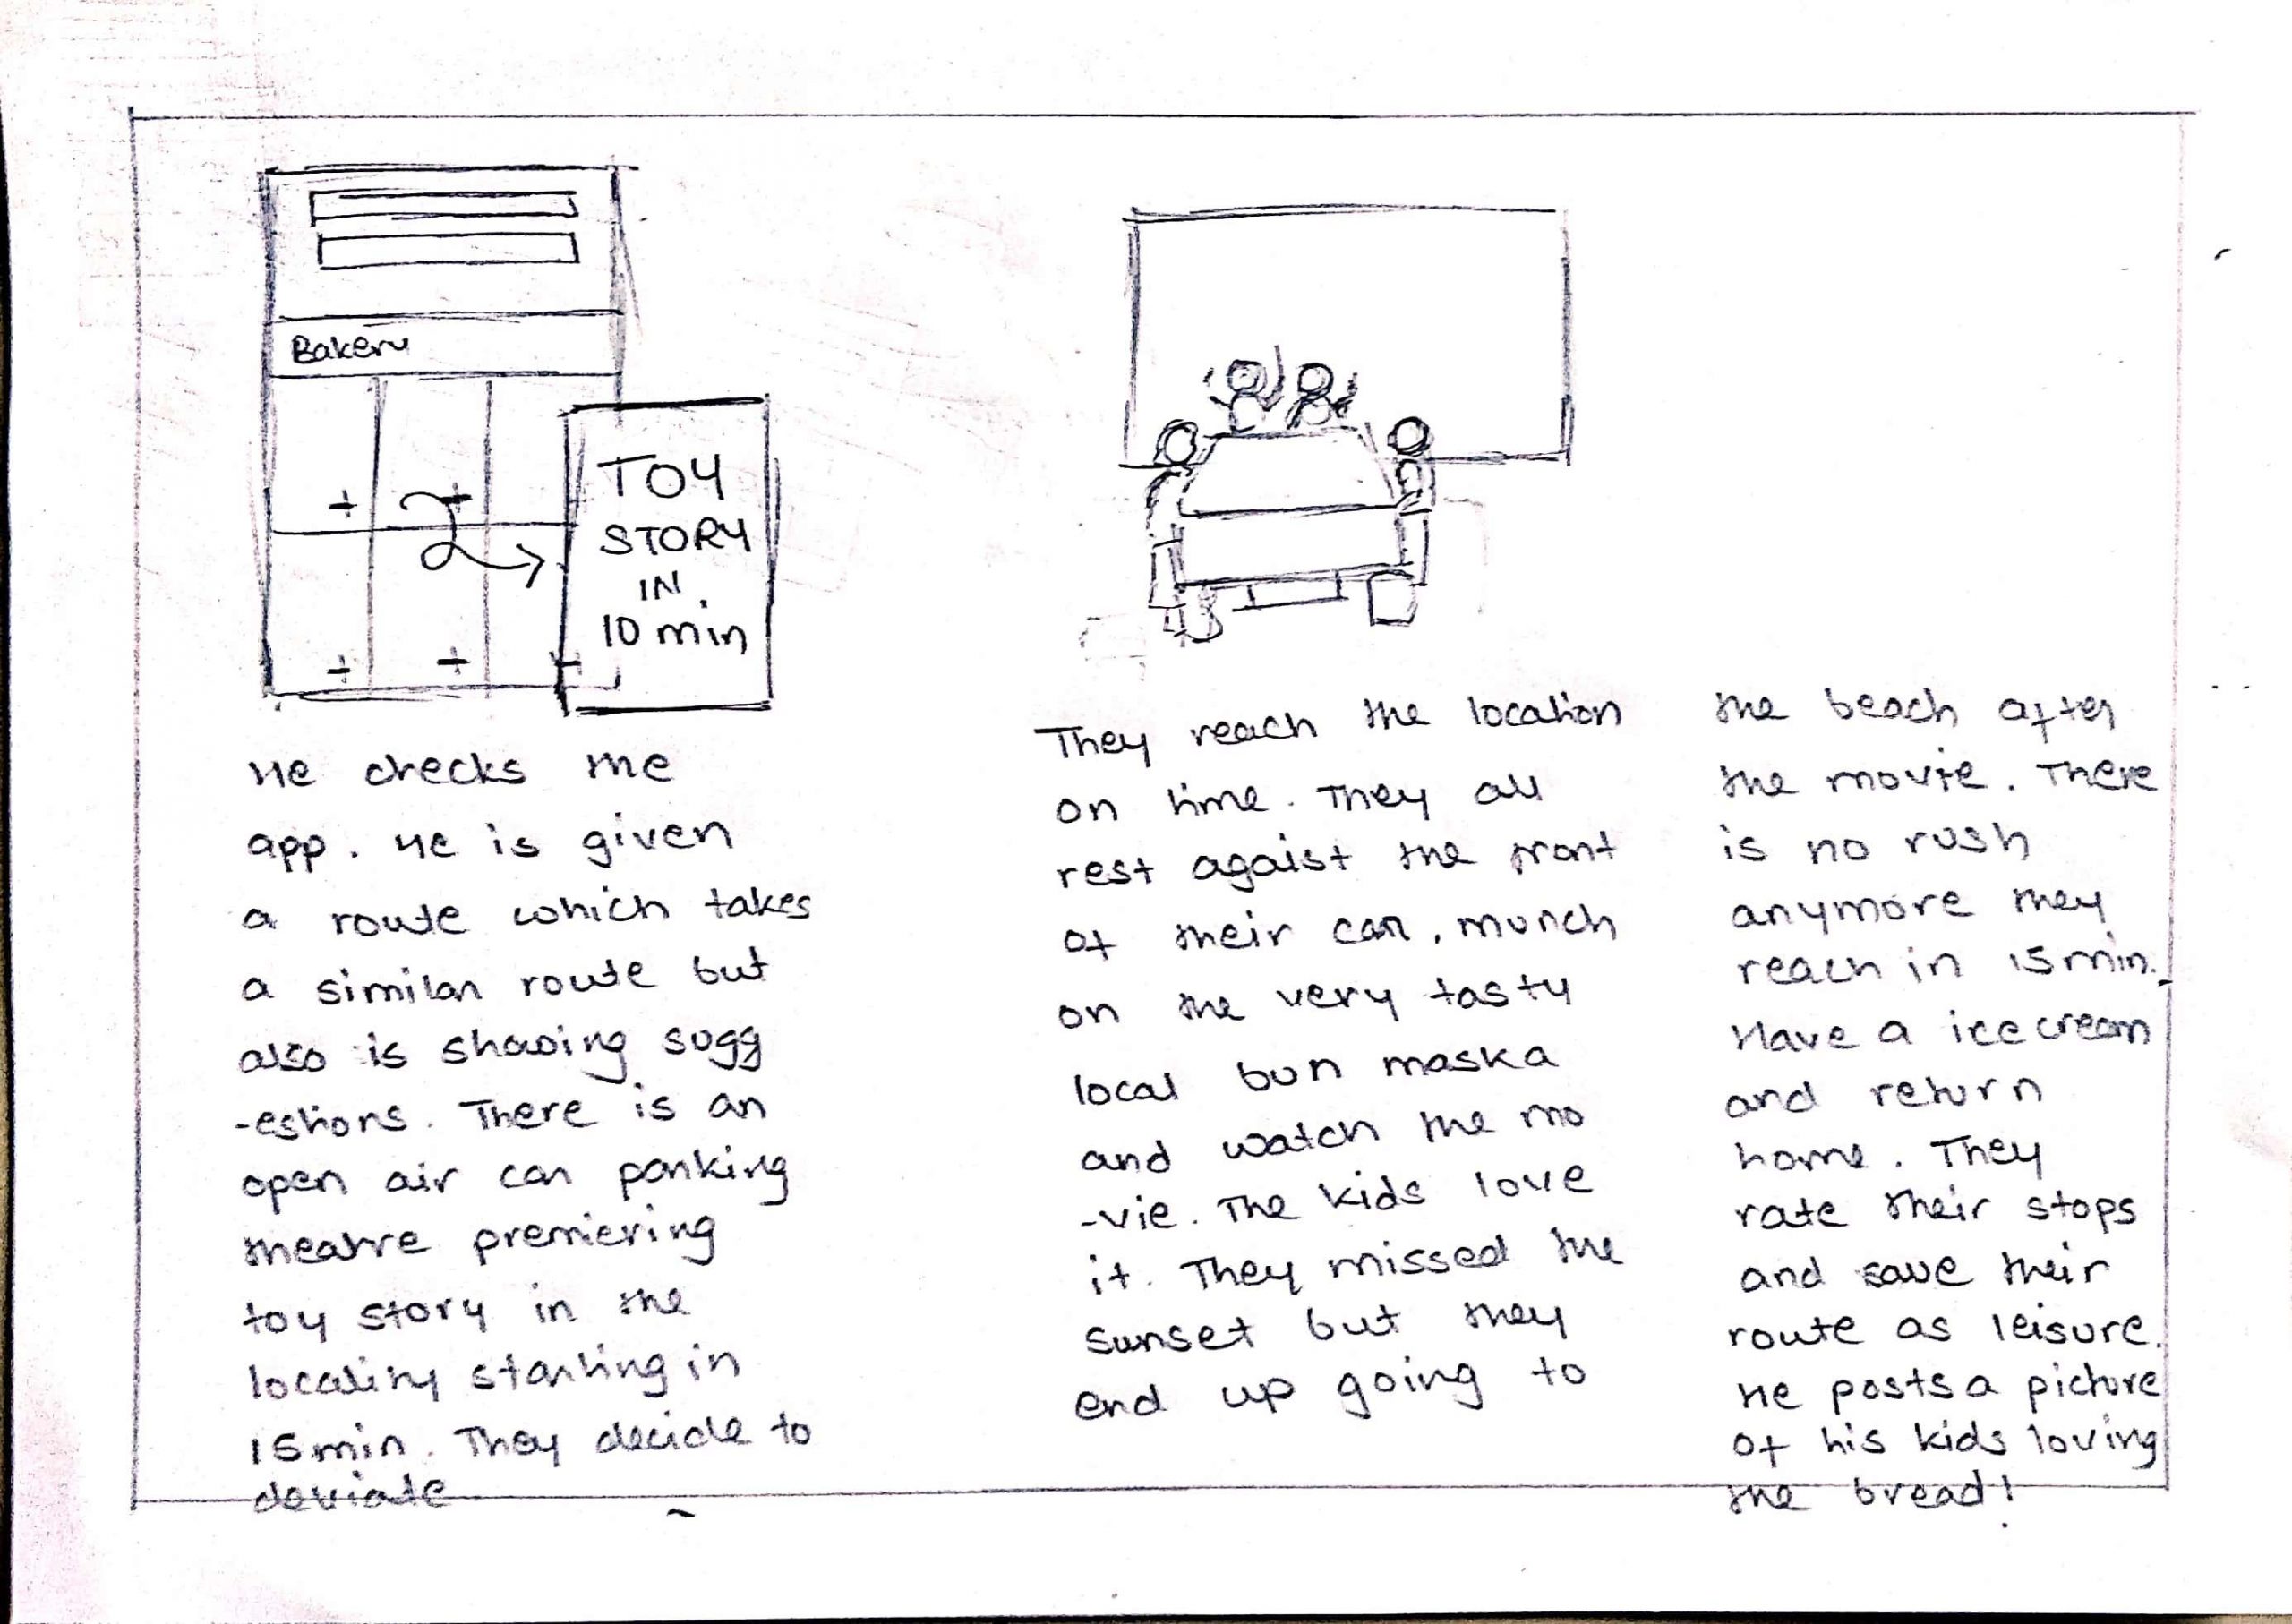 Bakery
TOY
STORY
IN
10 min
He checks the
app. He is given
a route which takes
a similar route but
also is showing sugg
-estions. There is an
open air car parking
theatre premiering
toy story in the
locality starting in
15 min. They decide to
deviate
They reach the location
on time. They all
rest agaist the front
of their car, munch
on the very tasty
local bun maska
and watch the mo
-vie. The kids love
it. They missed the
sunset but they
end up going to
the beach after
the movie. There
is no rush
anymore they
reach in 15 min.
Have a icecream
and return
home. They
rate their stops
and save their
route as leisure.
He posts a picture
of his kids loving
the bread!